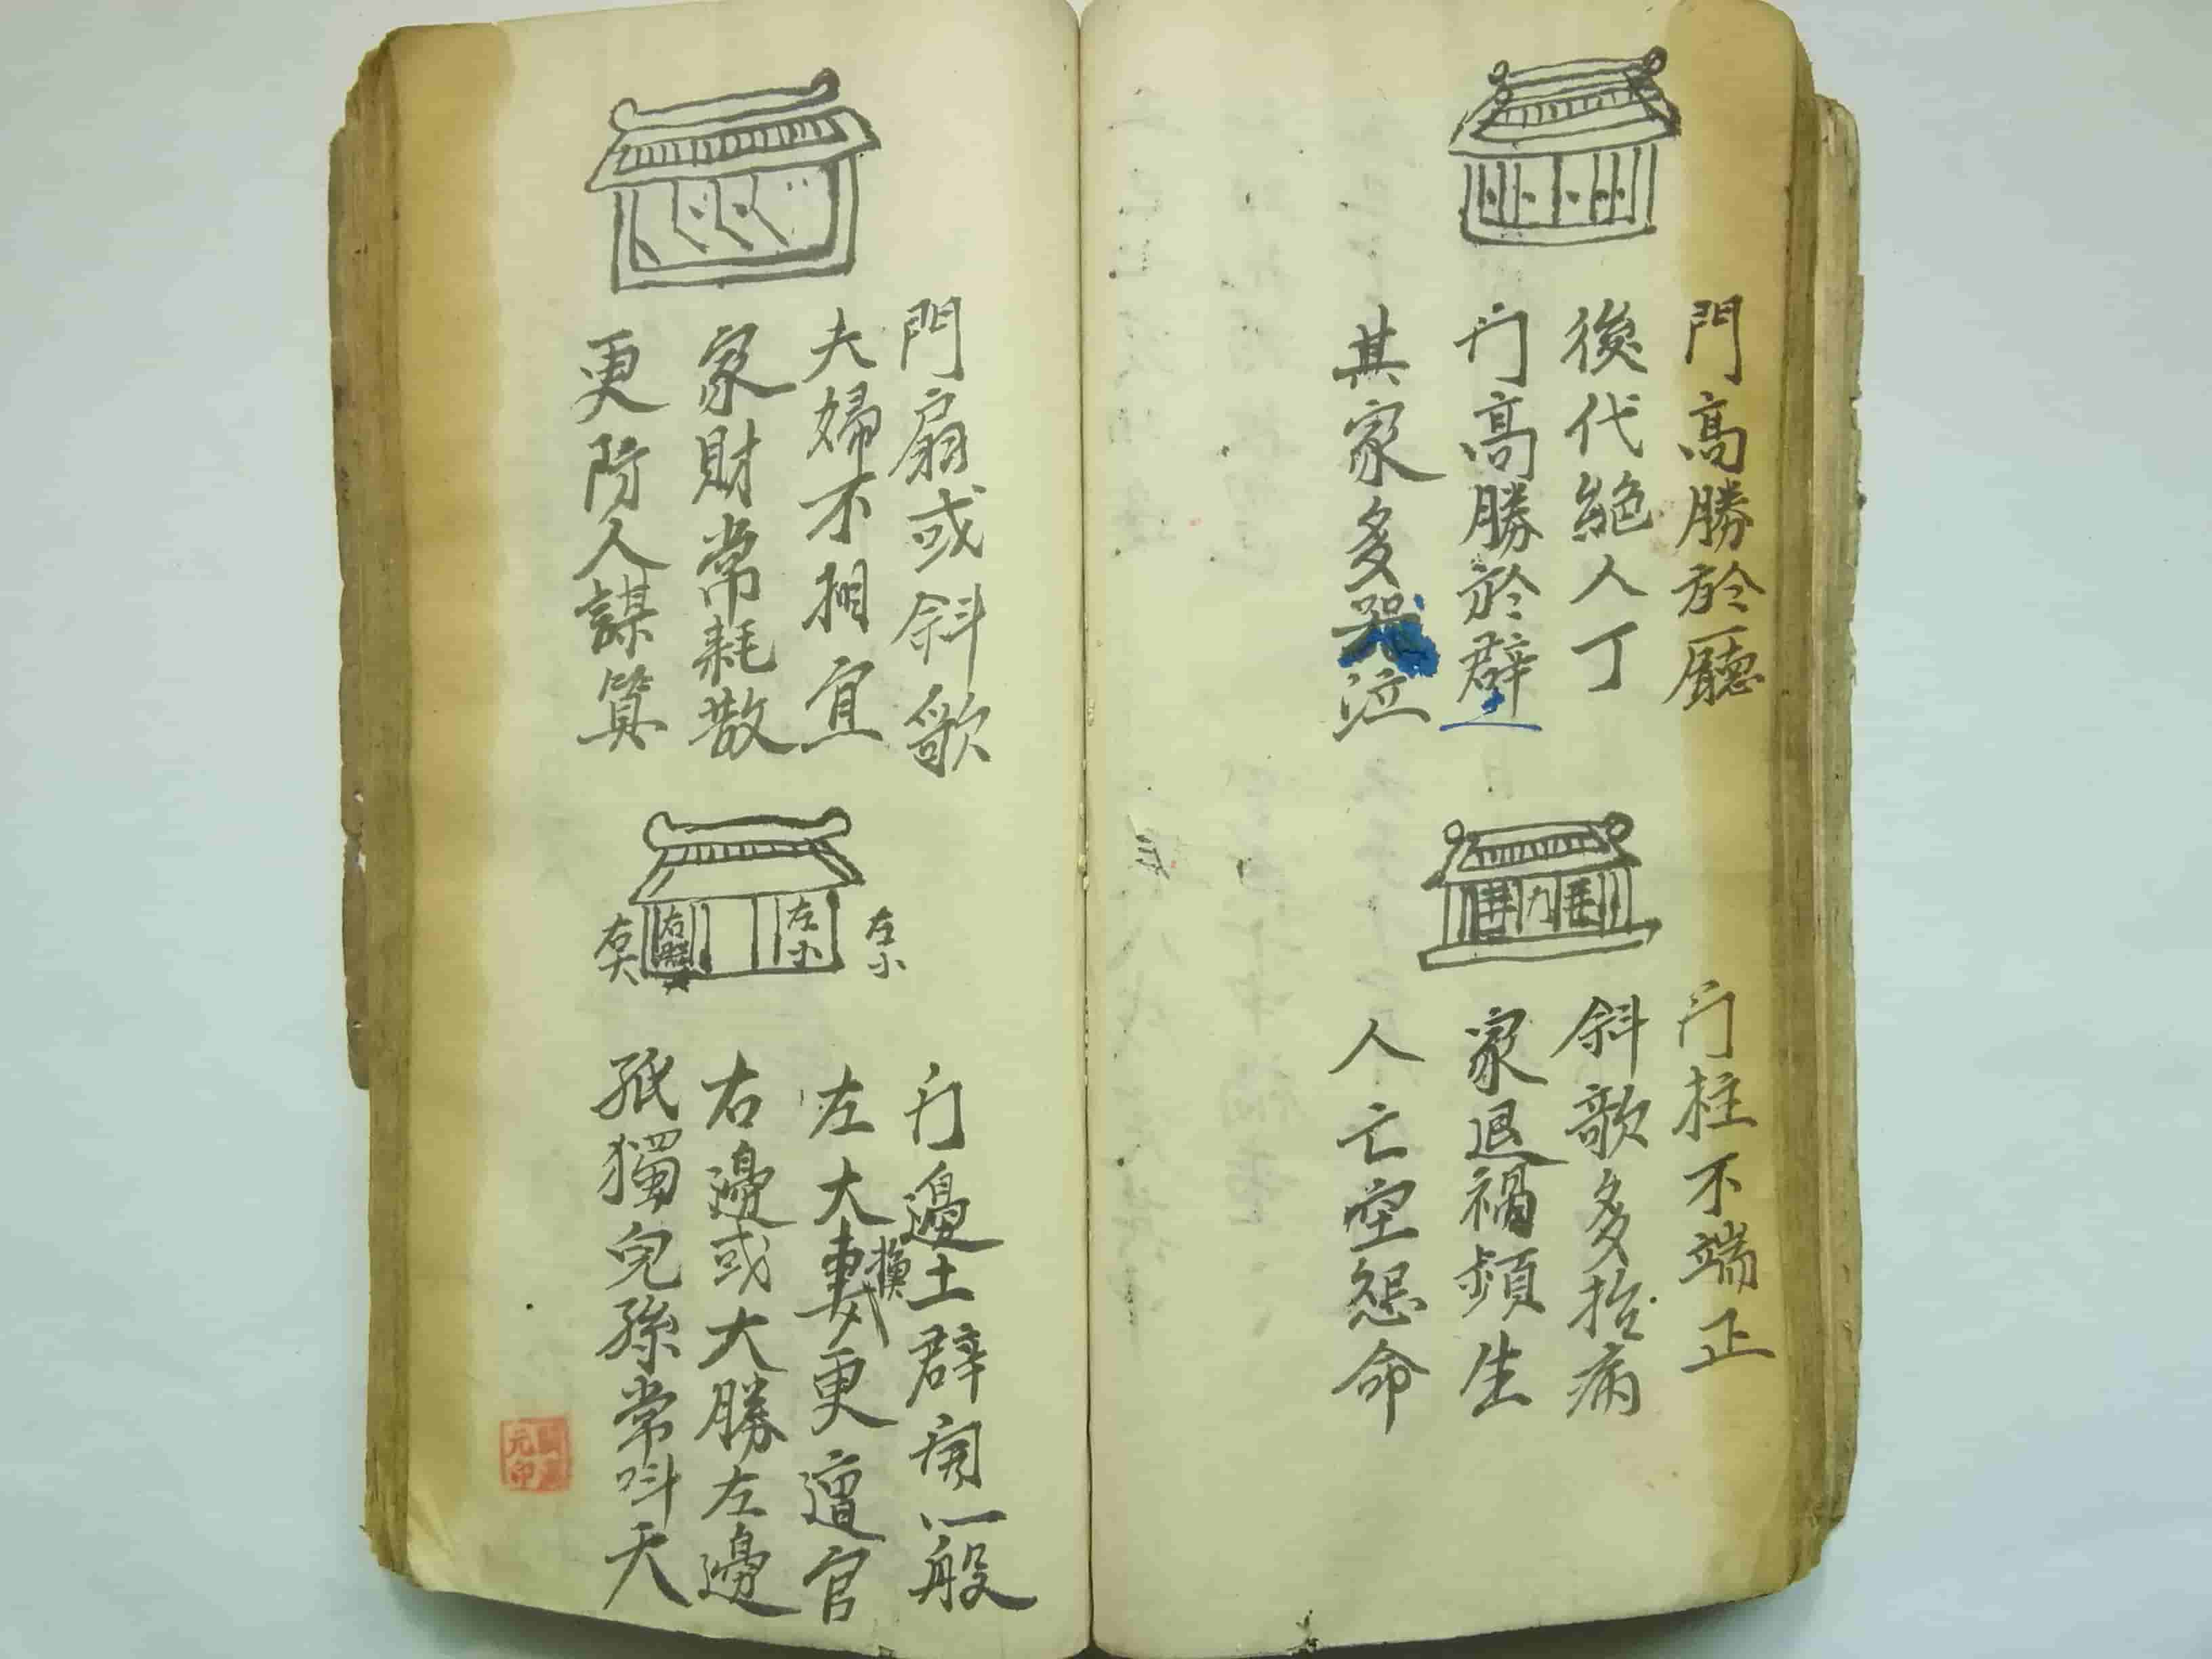 門高勝於廳
後代絕人丁
门高勝於壁
其家多哭泣
门柱不端正
斜歌多招病
家退禍頻生
人亡空怨命
門扇或斜歌
夫婦不相宜
家財常耗散
更防人謀算
右大
右
左小
左小
门邊土群一般
左大換妻更遭官
右邊或大勝左邊
孤獨兒孫常叫天
元印